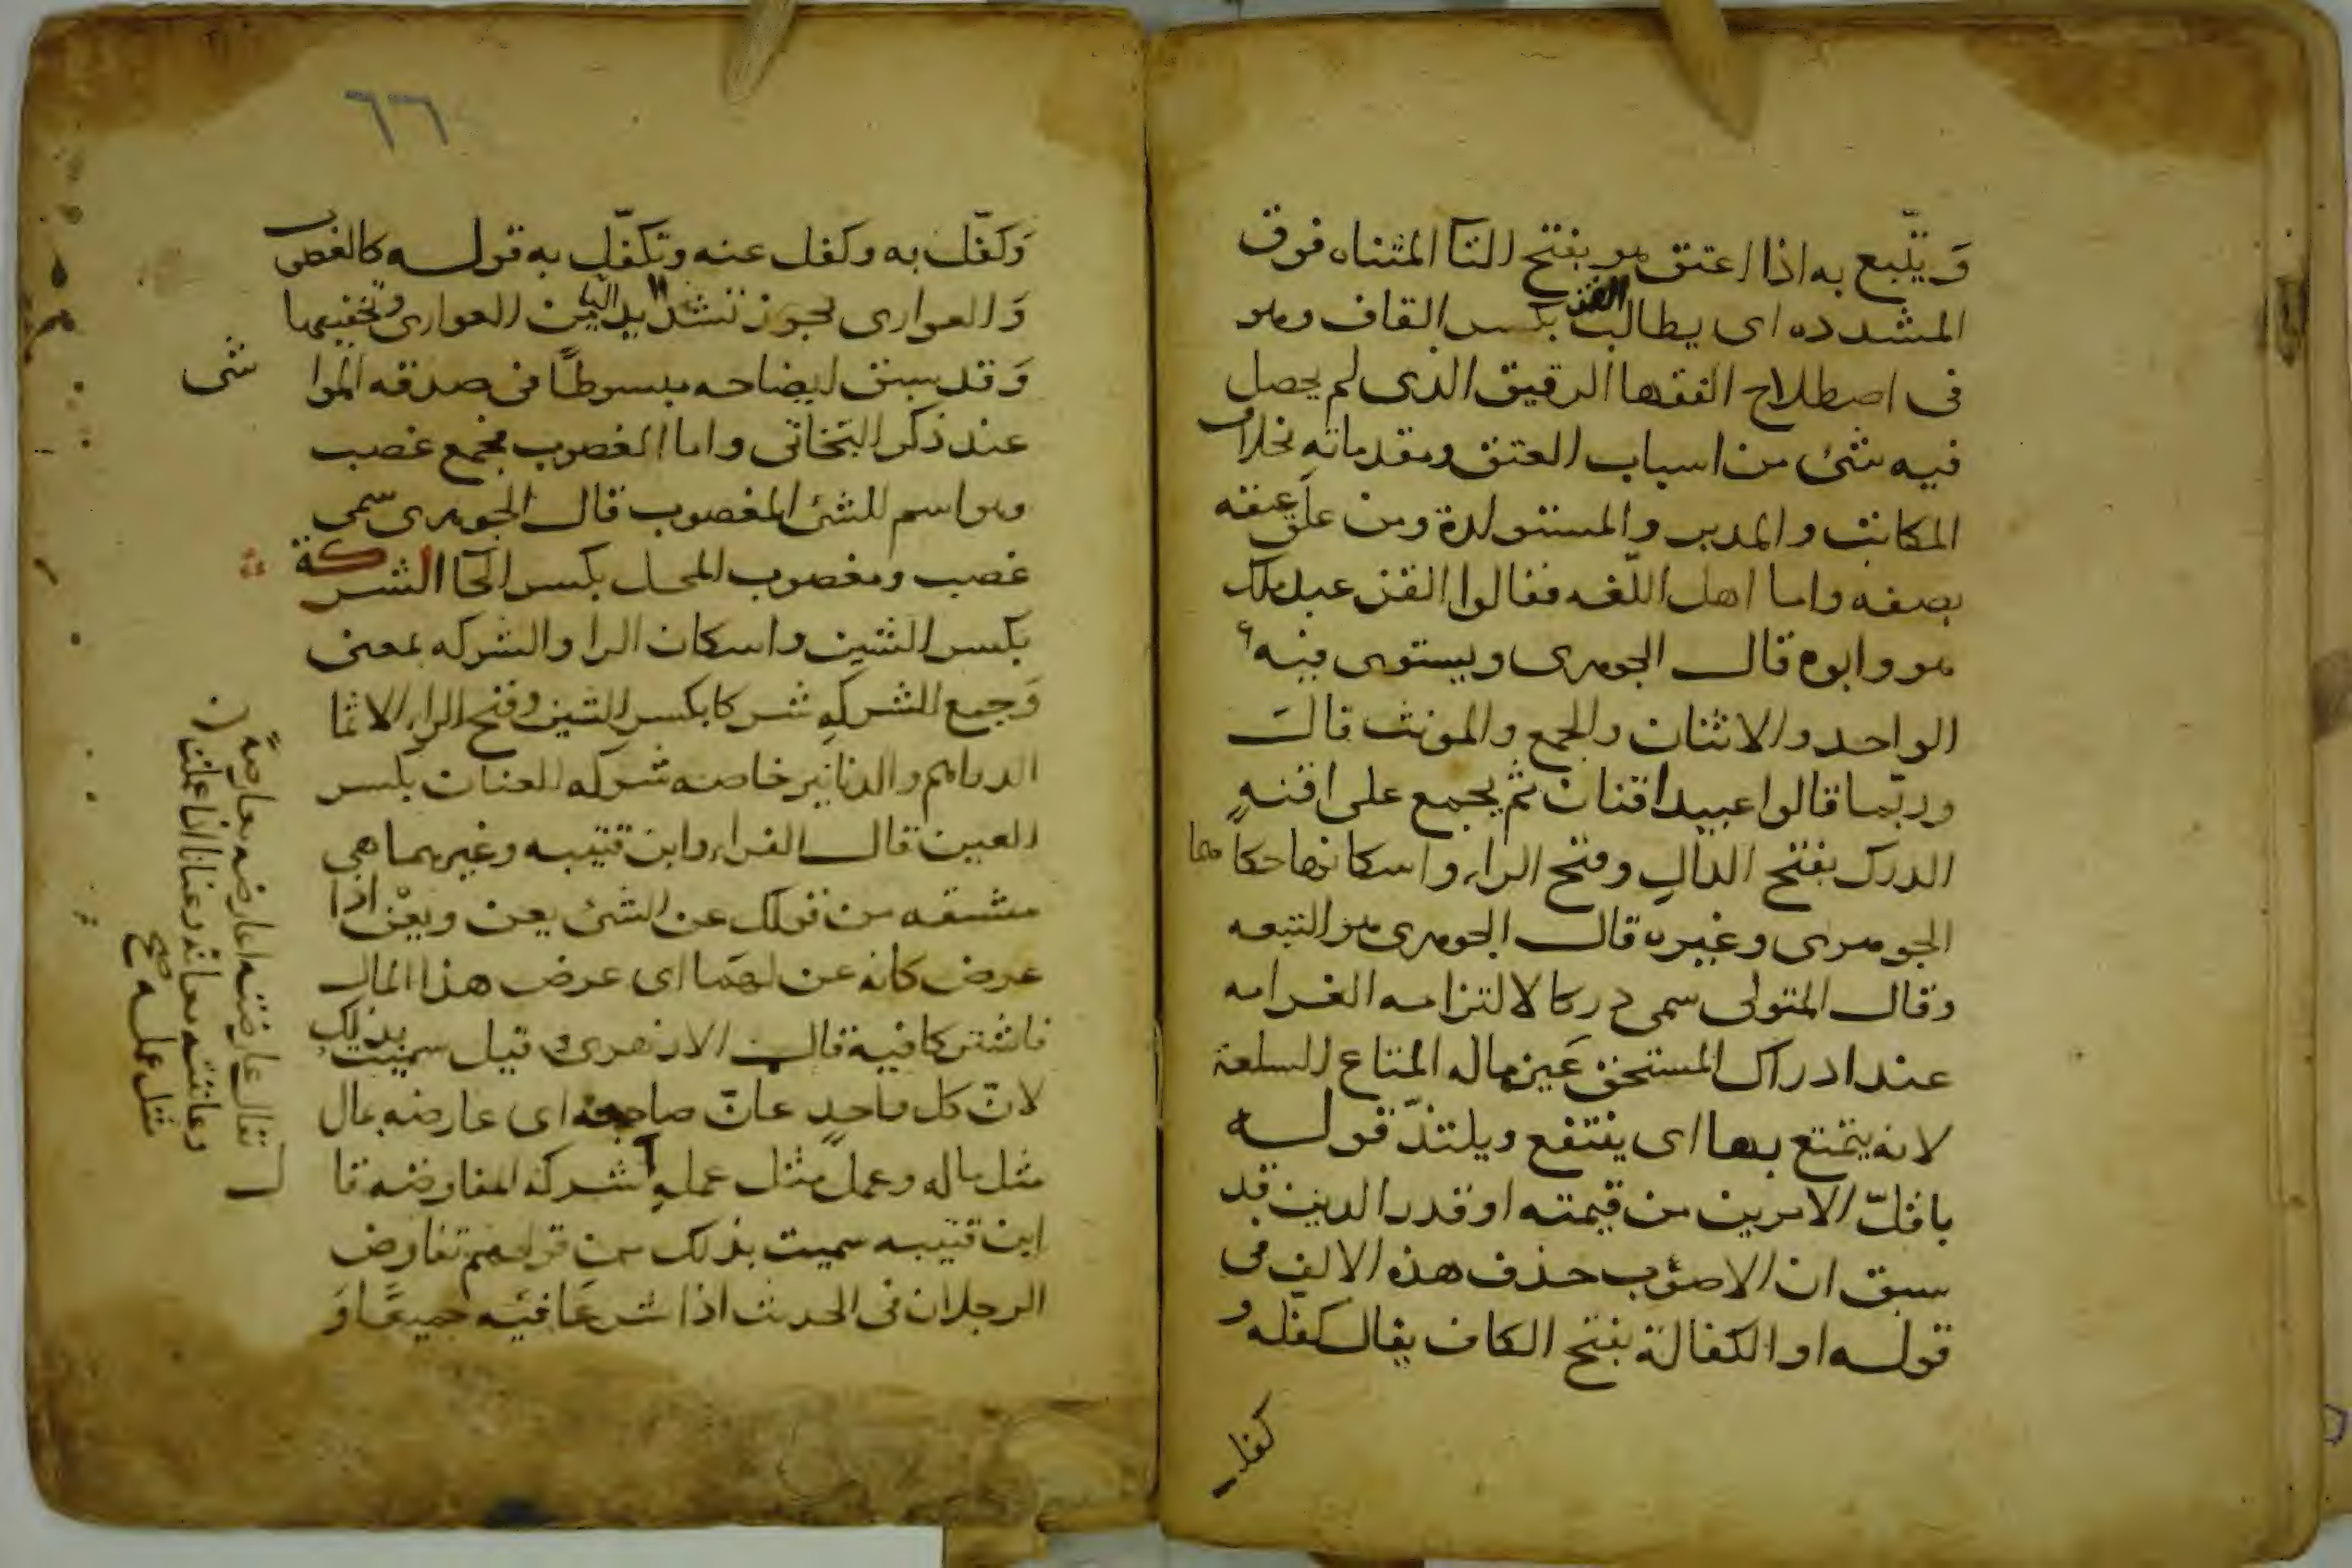 وَيتّبع به اذا اعتق هو بفتح التا المثناه فوق
المشدده اى يطالب القن بكسر القاف وهو
فى اصطلاح الفقها الرقيق الذى لم يحصل
فيه شئ من اسباب العتق ومقدماته بخلاف
المكاتب والمدبر والمستولدة ومن علق عتقه
بصفه واما اهل اللّغه فقالوا القن عبد ملك
هو وابوه قال الجوهرى ويستوى فيه
الواحد والاثنان والجمع والمونث قال
وربّما قالوا عبيد اقنان ثم يجمع على اقنه
الدرك بفتح الدال وفتح الراء واسكانها حكاهما
الجوهرى وغيره قال الجوهرى هو التبعه
وقال المتولى سمى دركا لالتزامه الغرامه
عند ادراك المستحق عَين ماله المتاع السلعة
لانه يتمتع بها اى ينتفع ويلتذّ قوله
باقلّ الامرين من قيمته او قدر الدين قد
سبق ان الاصوَب حذف هذه الالف فى
قوله او الكفالة بفتح الكاف يقال كفله و
كفل
٦٦
وَكفّل به وكفل عنه وتكفّل به قوله كالغصوب
وَالعوارى يجوز تشديد اليا من العوارى وتخفيفها
وَقد سبق ايضاحه مبسوطاً فى صدقه المواشى
عند ذكر البخاتى واما الغصوب فجمع غصب
وهو اسم للشئ المغصوب قال الجوهرى سمى
غصب ومغصوب المحل بكسر الحَا الشركة
بكسر الشين واسكان الرا والشركه بمعنى
وَجمع الشركهِ شركا بكسرِ الشين وفتح الراء الاثما
الدراهم والدنانير خاصه شركه العنان بكسر
العين قال الفراء وابن قتيبه وغيرهما هى
مشتقه من قولك عن الشئ يعن ويعُن اذا
عرض كانه عن لهَما اى عرض هذا المال
فاشتركا فيه قال الازهرى وقيل سميت بذلك
لانّ كل واحدٍ عانّ صاحبه اى عارضه بمال
مثل ماله وعمل مثل عملهِ شركه المفاوضه قال
ابن قتيبه سميت بذلك من قولهم تفاوض
الرجلان فى الحديث اذا شرعَا فيه جميعًا وَ
يقال عارضته اعارضه معارضةً
وعاننته معانه وعنانا اذا عملت
مثل عمله صح